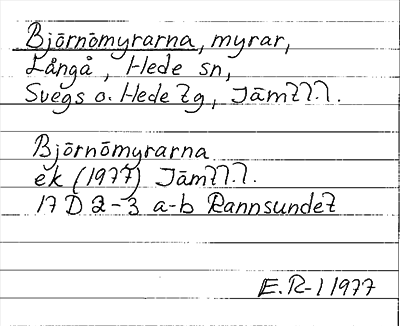 Björnömyrarna, myrar,
Långå, Hede sn,
Svegs o. Hede tg, Jämtl.
Björnömyrarna
ek (1977) Jämtl.
17 D 2-3 a-b Rannsundet
E.R-l 1977